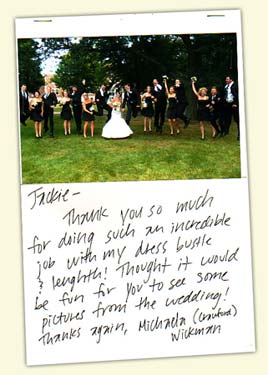 Jackie-
Thank you so much
for doing such an incredible
job with my dress bustle
& lenghth! Thought it would
be fun for you to see some
pictures from the wedding!
Thanks again, Michaela (Crawford)
Wickman